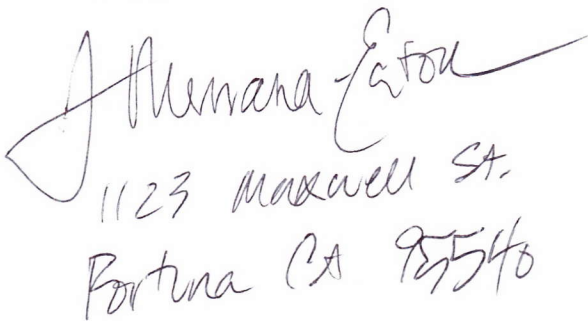 J Herrana-Eaton
1123 Maxwell St.
Fortuna CA 95540